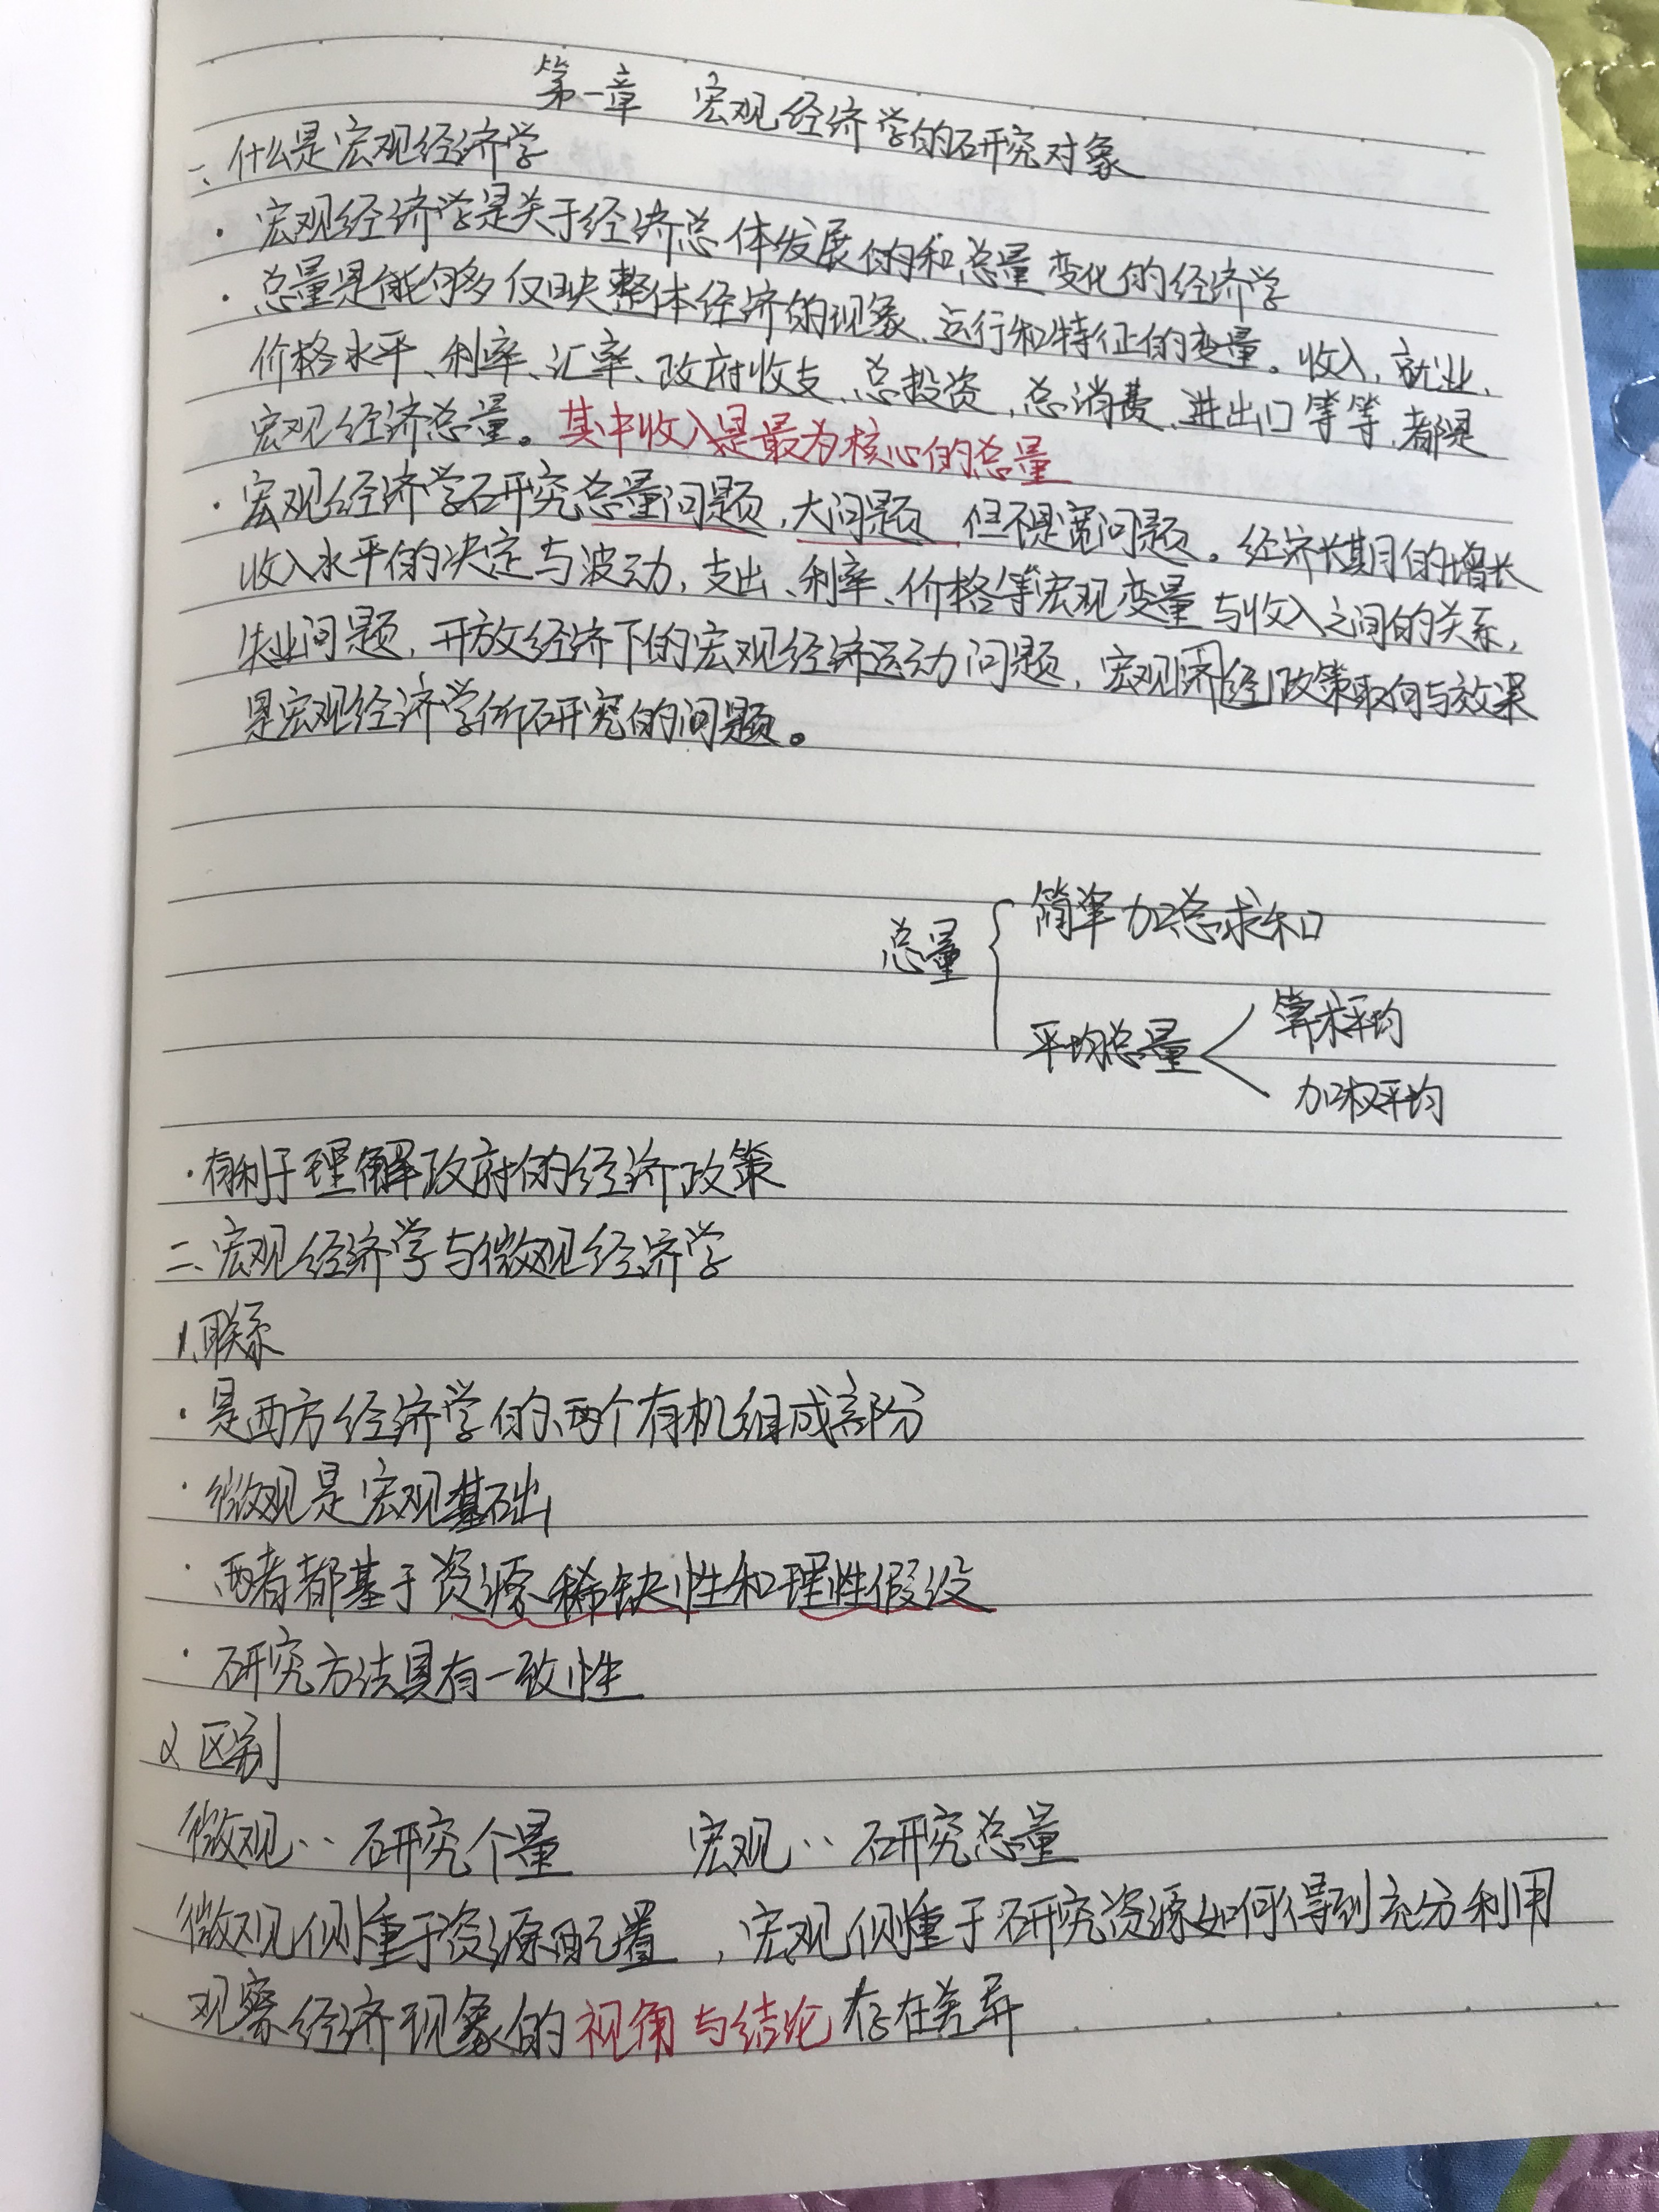 第一章 宏观经济学的研究对象
一、什么是宏观经济学
· 宏观经济学是关于经济总体发展的和总量变化的经济学
· 总量是能够反映整体经济的现象、运行和特征的变量。收入、就业、
价格水平、利率、汇率、政府收支、总投资、总消费、进出口等等,都是
宏观经济总量。其中收入是最为核心的总量
· 宏观经济学研究总量问题,大问题,但不是宽问题。经济长期的增长
收入水平的决定与波动,支出、利率、价格等宏观变量与收入之间的关系,
失业问题,开放经济下的宏观经济运动问题,宏观济经政策取向与效果
是宏观经济学所研究的问题。
总量 简单加总求和
平均总量 算术平均
加权平均
· 有利于理解政府的经济政策
二、宏观经济学与微观经济学
1、联系
· 是西方经济学的两个有机组成部分
· 微观是宏观基础
· 两者都基于资源稀缺性和理性假设
· 研究方法具有一致性
2、区别
微观…研究个量 宏观…研究总量
微观侧重于资源配置,宏观侧重于研究资源如何得到充分利用
观察经济现象的视角与结论存在差异